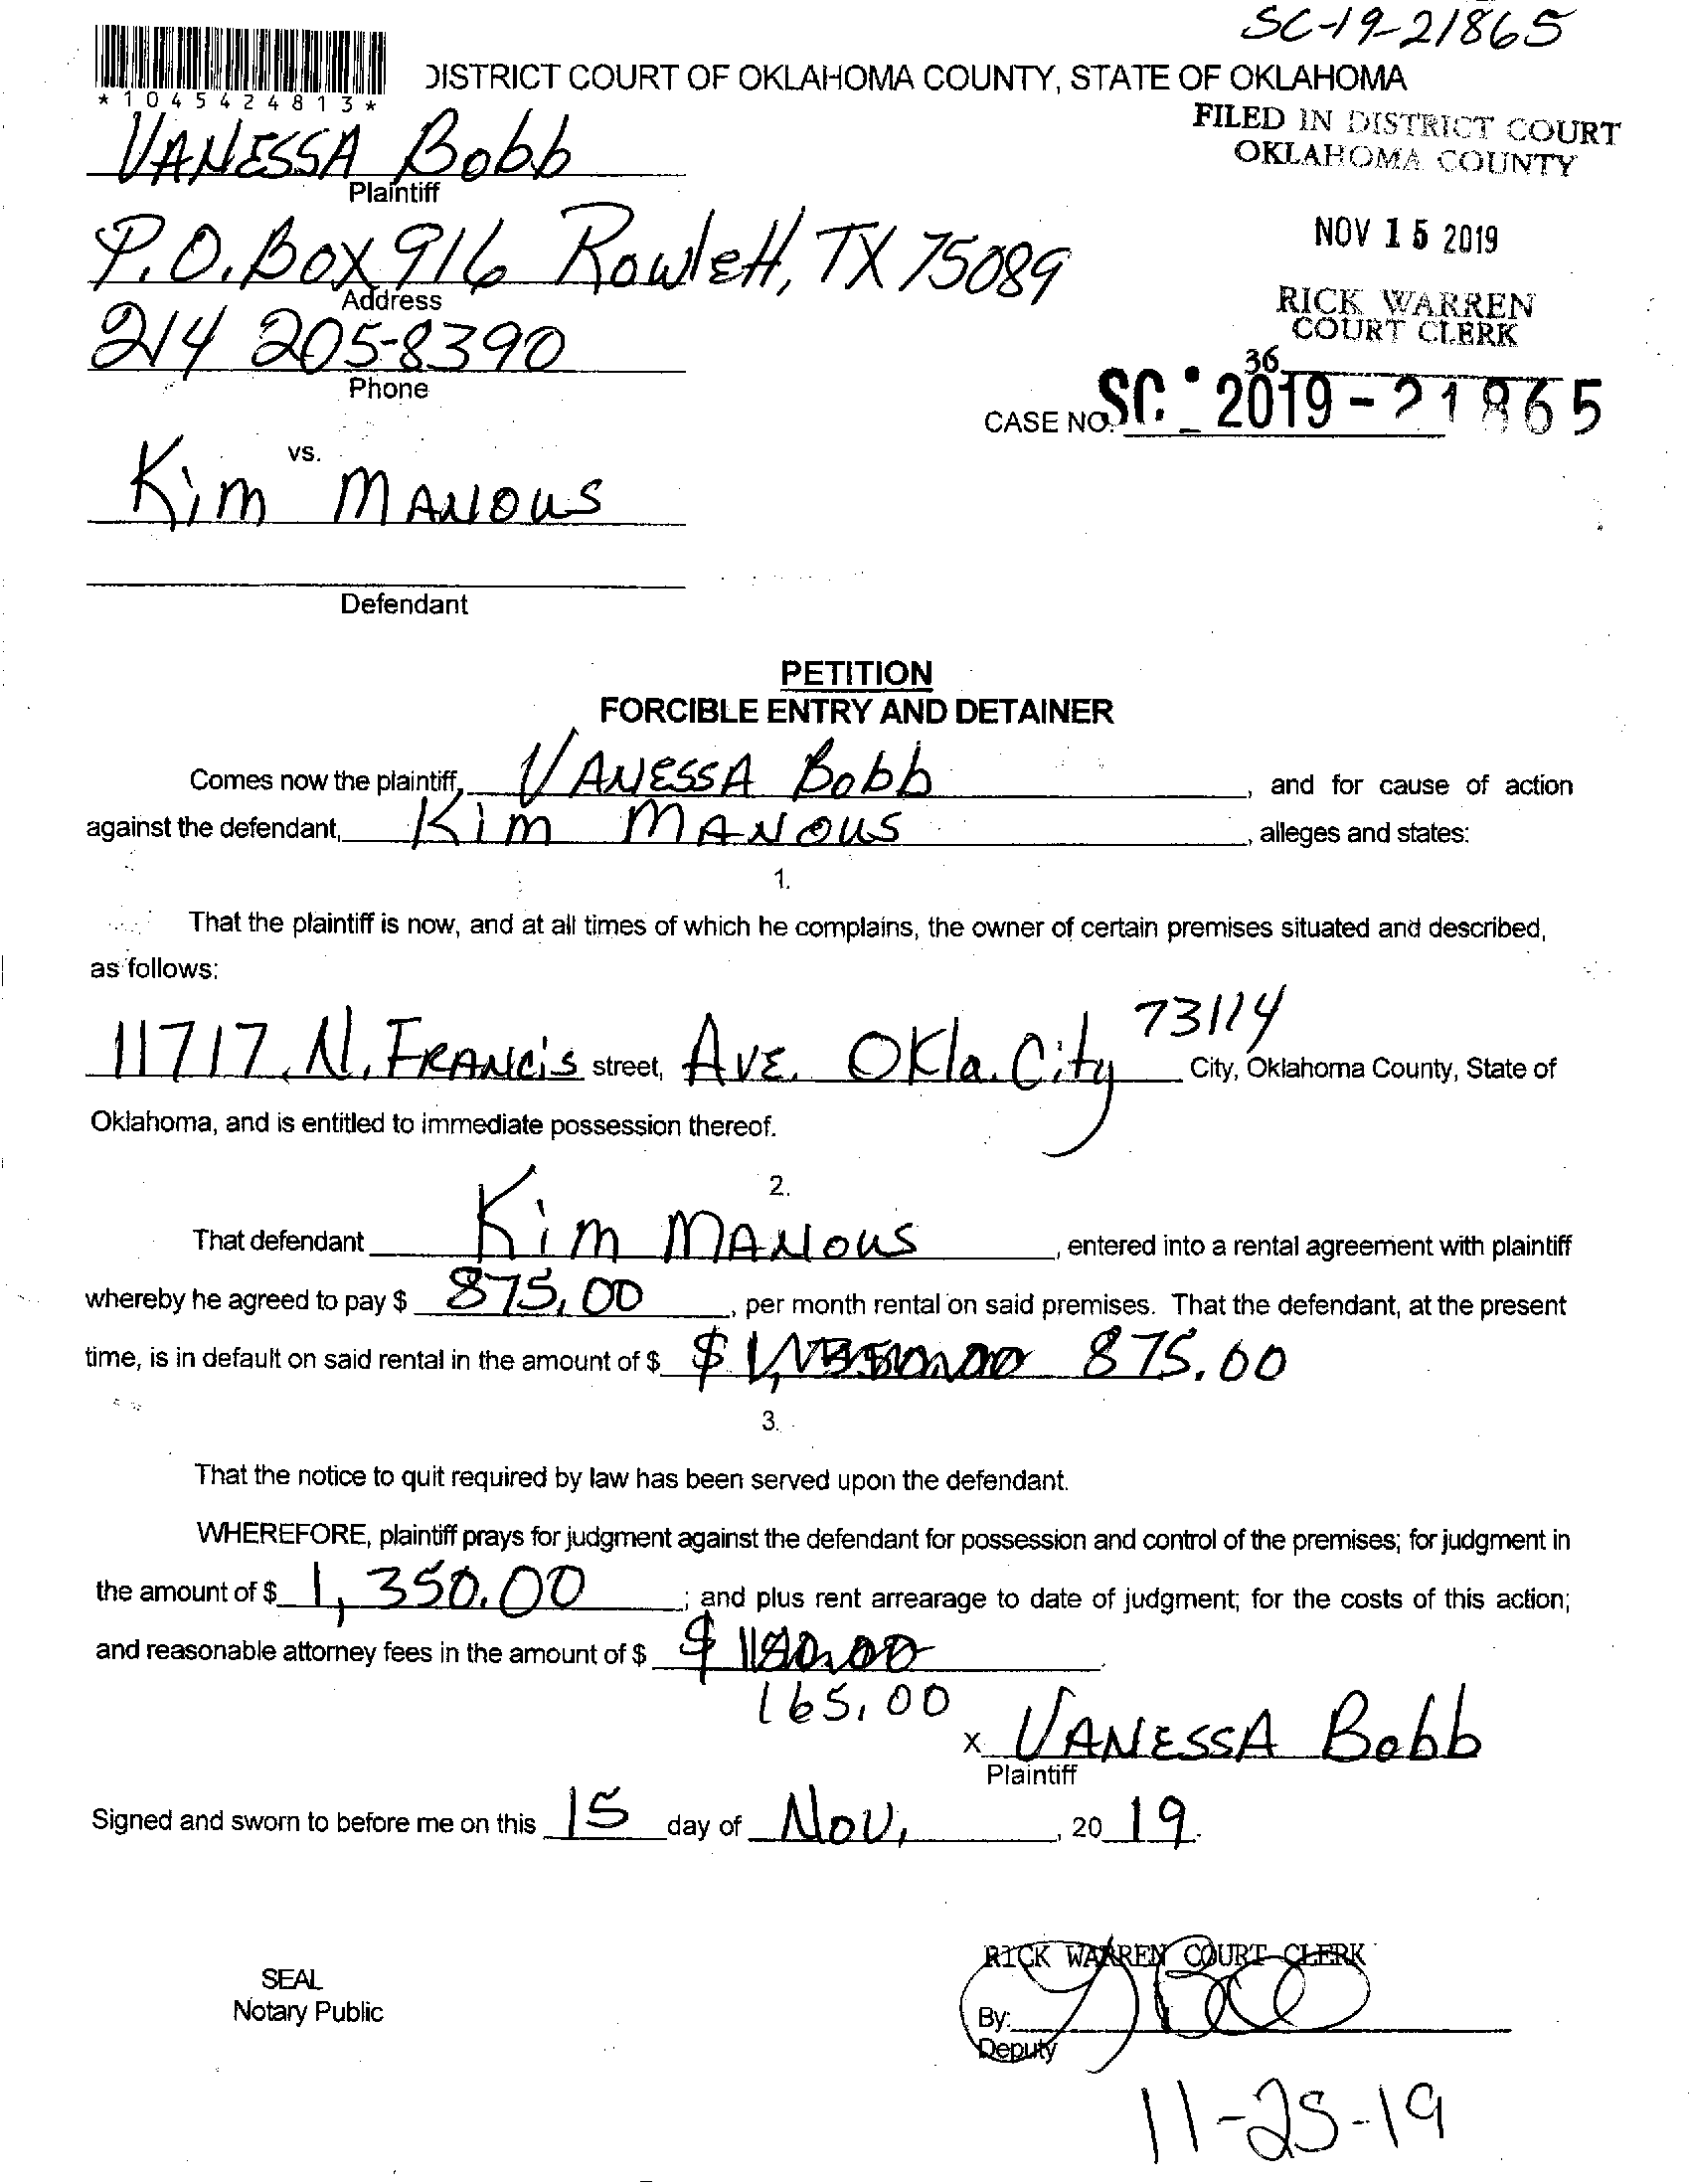 SC-19-21865
*1045424813*
DISTRICT COURT OF OKLAHOMA COUNTY, STATE OF OKLAHOMA
FILED IN DISTRICT COURT
OKLAHOMA COUNTY
VANESSA Bobb
Plaintiff
P.O. Box 916 Rowlett, TX 75089
Address
NOV 15 2019
RICK WARREN
COURT CLERK
214 205-8390
Phone
36
CASE NO. SC - 2019 - 21865
vs.
Kim MANOUS
Defendant
PETITION
FORCIBLE ENTRY AND DETAINER
Comes now the plaintiff, VANESSA Bobb, and for cause of action
against the defendant, KIM MANOUS, alleges and states:
1.
That the plaintiff is now, and at all times of which he complains, the owner of certain premises situated and described,
as follows:
11717 N. FRANCIS street, AVE. Okla. City 73114 City, Oklahoma County, State of
Oklahoma, and is entitled to immediate possession thereof.
2.
That defendant Kim MANOUS, entered into a rental agreement with plaintiff
whereby he agreed to pay $ 875.00, per month rental on said premises. That the defendant, at the present
time, is in default on said rental in the amount of $ $ 875.00
3.
That the notice to quit required by law has been served upon the defendant.
WHEREFORE, plaintiff prays for judgment against the defendant for possession and control of the premises; for judgment in
the amount of $ 1,350.00; and plus rent arrearage to date of judgment; for the costs of this action;
and reasonable attorney fees in the amount of $ $
165.00
x VANESSA Bobb
Plaintiff
Signed and sworn to before me on this 15 day of Nov., 20 19.
RICK WARREN COURT CLERK
SEAL
Notary Public
By:
Deputy
11-25-19